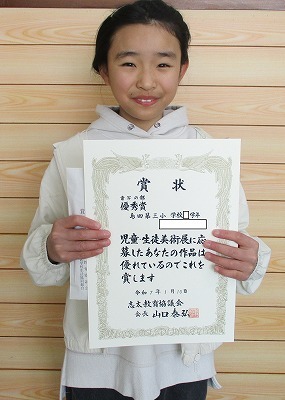 賞状
書写の部
優秀賞
島田第三小 学校 学年
児童・生徒美術展に応
募したあなたの作品は
優れているのでこれを
賞します
令和7年1月18日
志太教育協議会
会長 山口泰弘